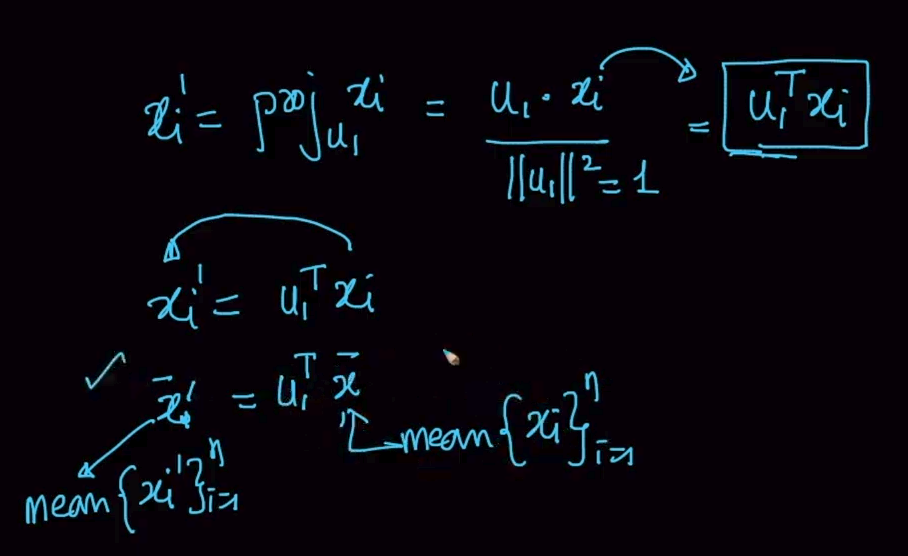 xᵢ' = proj_{u₁} xᵢ = u₁ · xᵢ / ||u₁||² = 1 = u₁ᵀ xᵢ
xᵢ' = u₁ᵀ xᵢ
✓ x̄' = u₁ᵀ x̄
mean{xᵢ}ⁿᵢ₌₁
mean{xᵢ'}ⁿᵢ₌₁